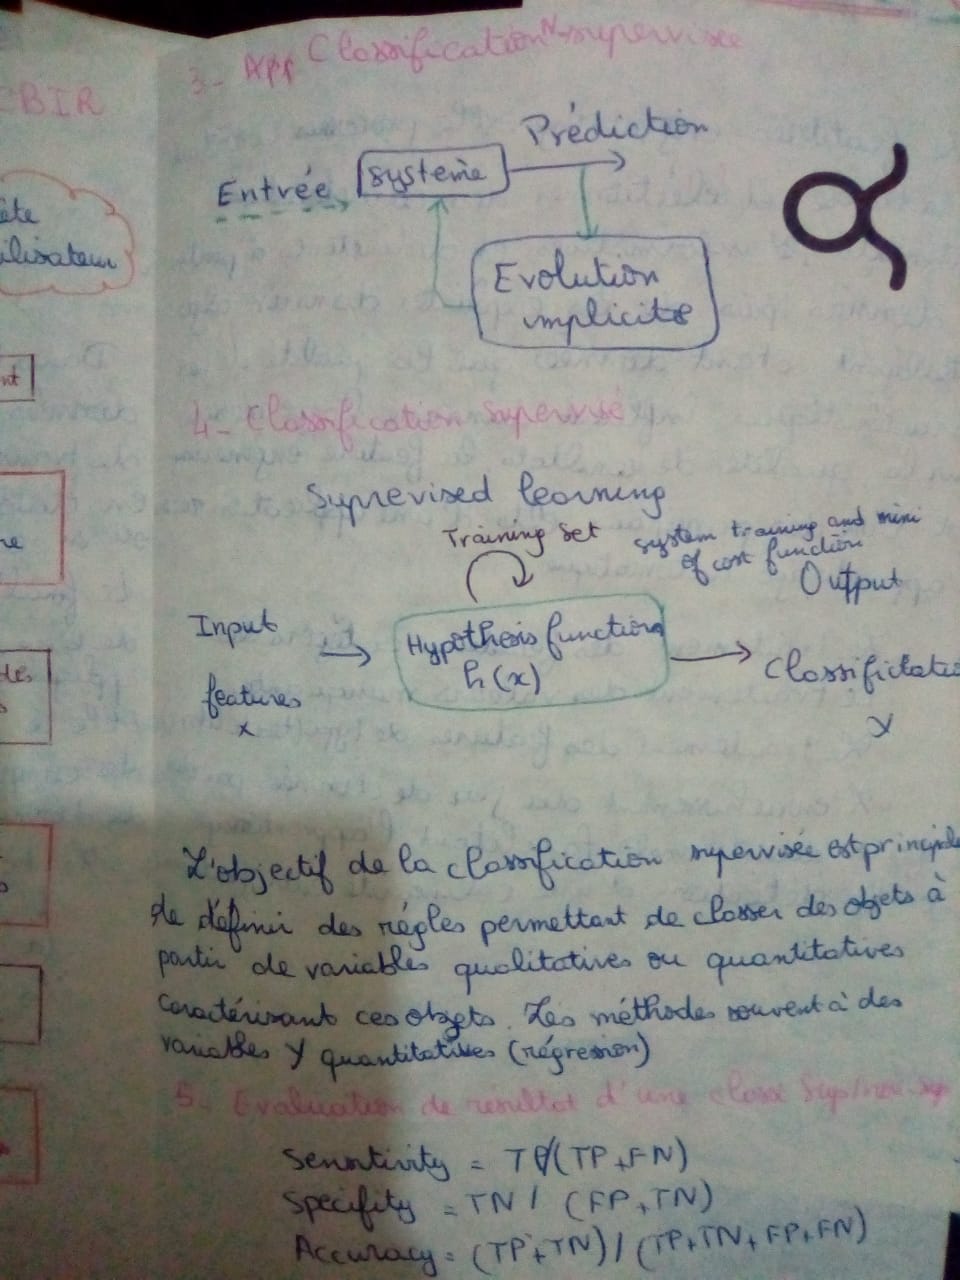 3- App Classification N-supervisée
CBIR
Prédiction
système
Entrée
Evolution
implicite
ilisateur
nt
4- Classification supervisé
Suprevised learning
Training set
system training and mini
of cost function
Output
Input
Hypothesis function
h(x)
features
x
Classifictatio
y
des
L'objectif de la classification supervisée est principale
de définir des régles permettant de classer des objets à
partir de variables qualitatives ou quantitatives
caractérisant ces objets. Les méthodes souvent à des
variables Y quantitatives (régression)
5- Evaluation de résultat d'une classi sup/non.sup
Sensitivity = TP/(TP+FN)
Specifity = TN / (FP+TN)
Accuracy = (TP+TN)/(TP+TN+FP+FN)